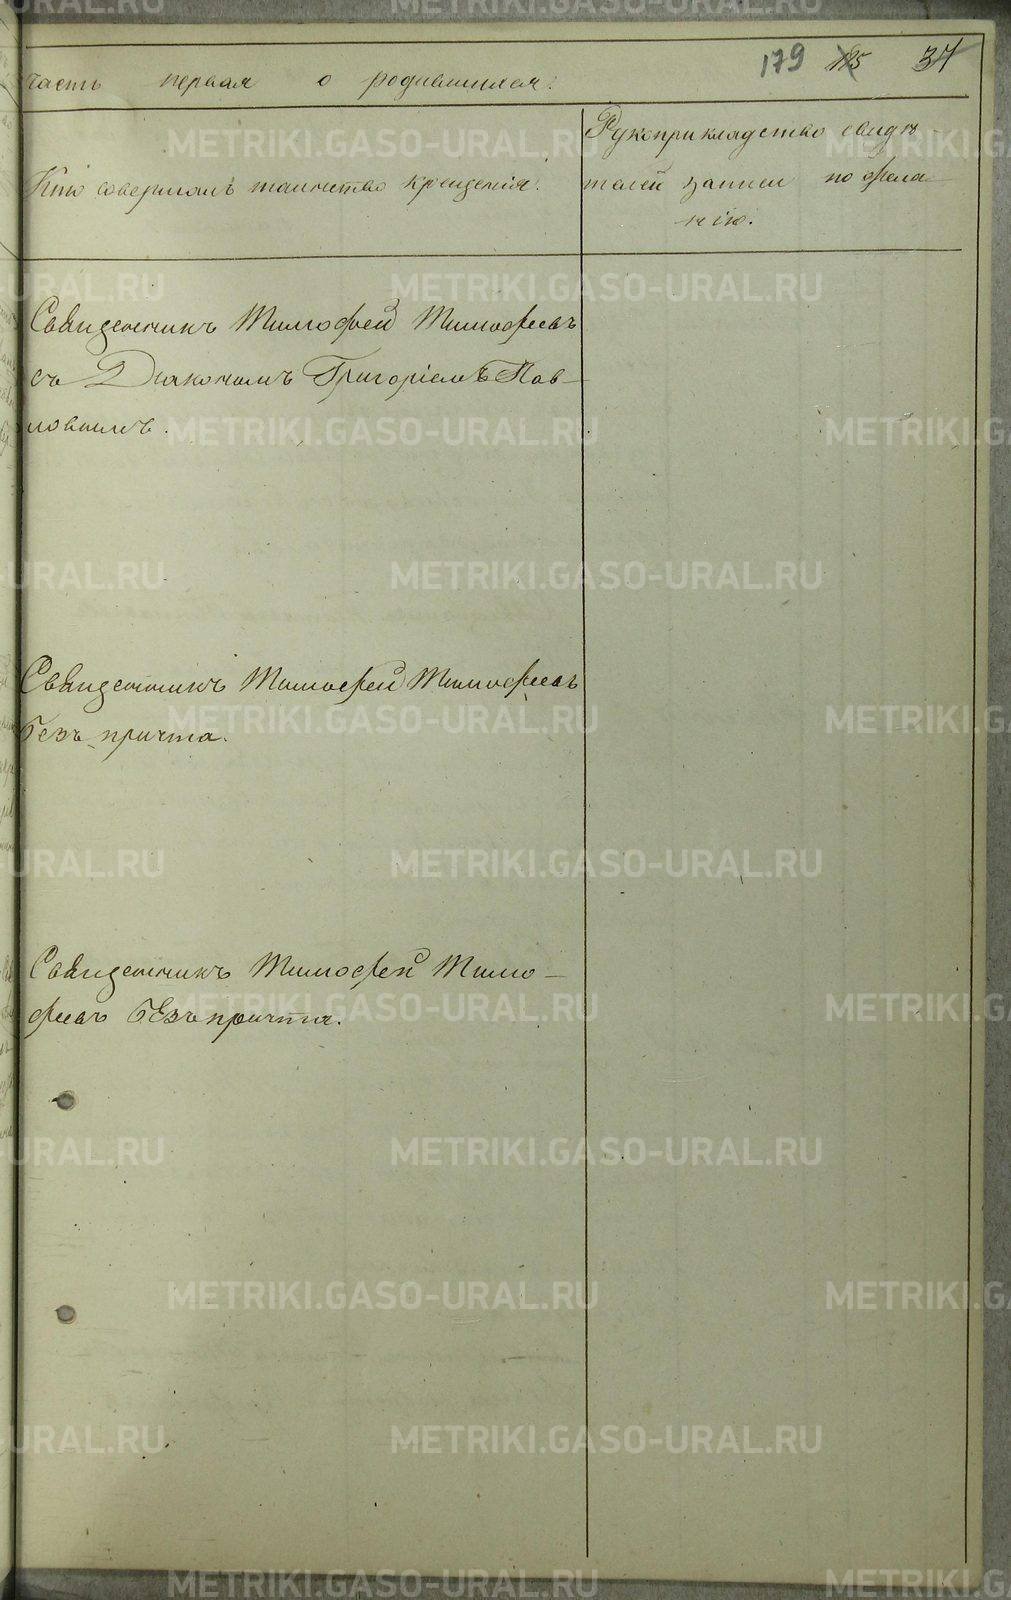 179 185 37
часть первая о родившихся.
Кто совершалъ таинство крещенія.
Рукоприкладство свидѣ-
телей записи по жела-
нію.
Священникъ Тимофей Тимофеевъ
съ Діакономъ Григоріемъ Пав-
ловымъ.
Священникъ Тимофей Тимофеевъ
безъ причта.
Священникъ Тимофей Тимо-
феевъ безъ причта.
METRIKI.GASO-URAL.RU